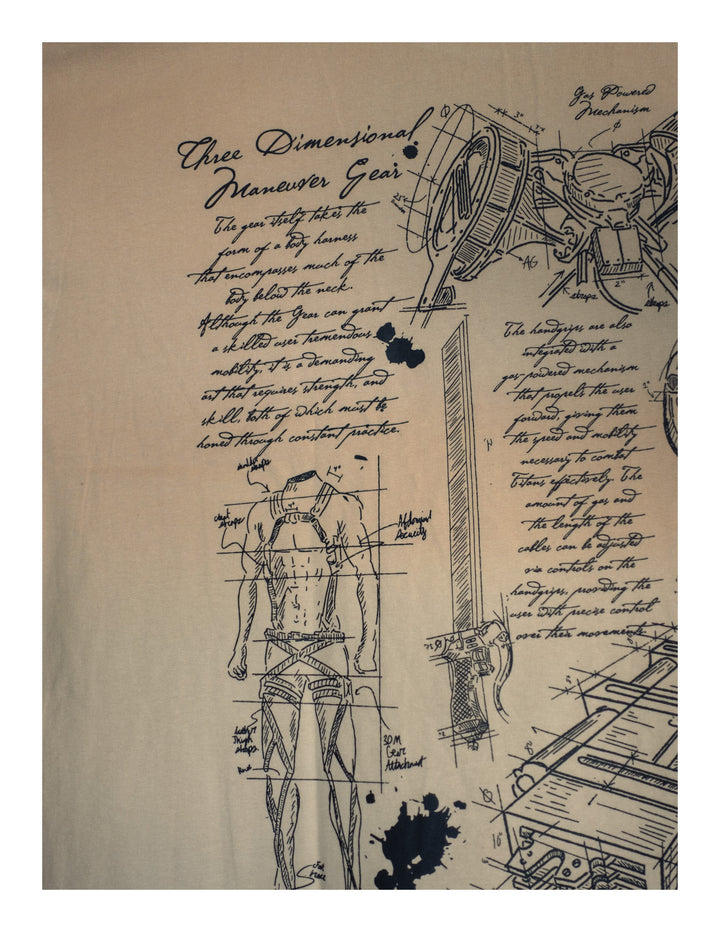 Three Dimensional
Maneuver Gear
The gear itself takes the
form of a body harness
that encompasses much of the
body below the neck.
Although the Gear can grant
a skilled user tremendous
mobility, it is a demanding
art that requires strength, and
skill, both of which must be
honed through constant practice.
Gas Powered
Mechanism
3"
AG
2"
straps
straps
The handgrips are also
integrated with a
gas-powered mechanism
that propels the user
forward, giving them
the speed and mobility
necessary to combat
Titans effectively. The
amount of gas and
the length of the
cables can be adjusted
via controls on the
handgrips, providing the
user with precise control
over their movements.
chest
straps
Thigh
straps
3DM
Gear
Attachment
8"
16"